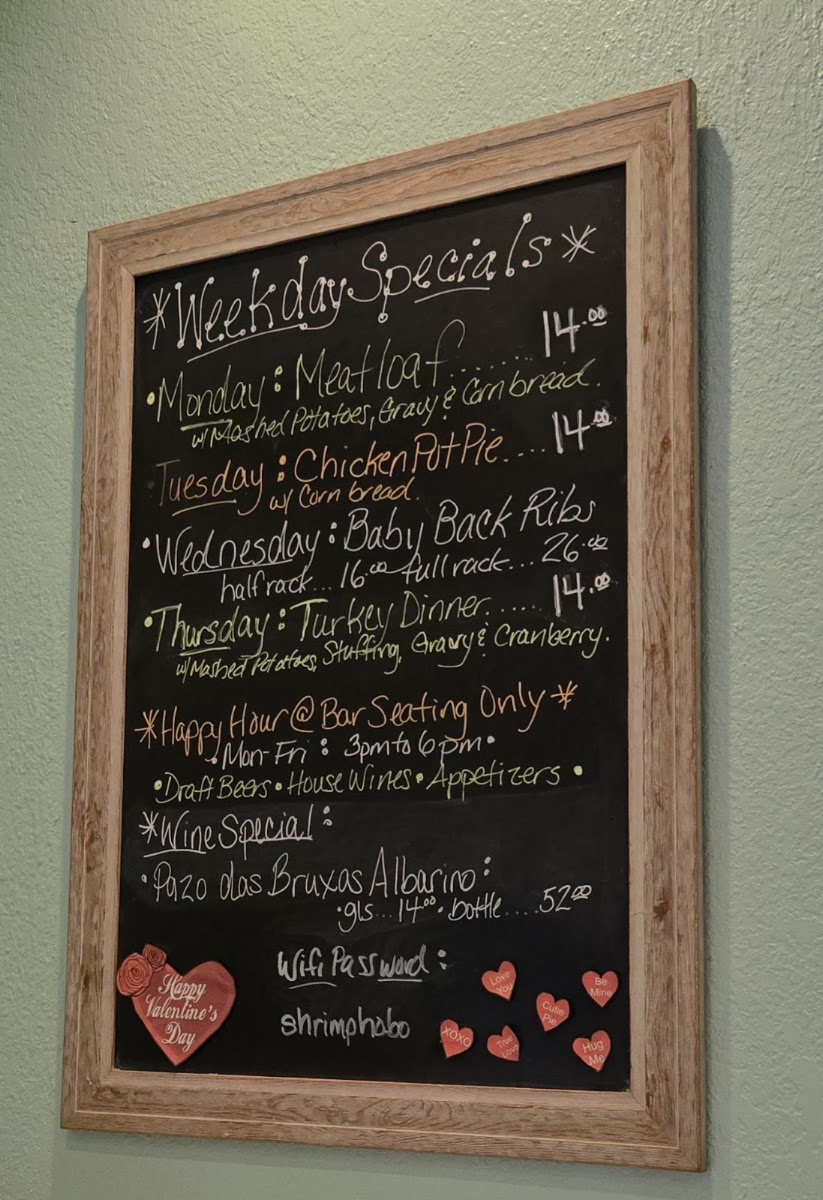 *Weekday Specials*
• Monday: Meatloaf........ 14.00
w/ Mashed Potatoes, Gravy & Cornbread.
Tuesday: Chicken Pot Pie..... 14.00
w/ Cornbread.
• Wednesday: Baby Back Ribs
half rack... 16.00 full rack... 26.00
• Thursday: Turkey Dinner...... 14.00
w/ Mashed Potatoes, Stuffing, Gravy & Cranberry.
*Happy Hour @ Bar Seating Only*
• Mon-Fri: 3pm to 6pm •
• Draft Beers • House Wines • Appetizers •
*Wine Special:
• Pazo das Bruxas Albarino:
• gls... 14.00 • bottle..... 52.00
Wifi Password:
shrimphobo
Happy
Valentine's
Day
Love
You
Be
Mine
Cutie
Pie
XOXO
True
Love
Hug
Me